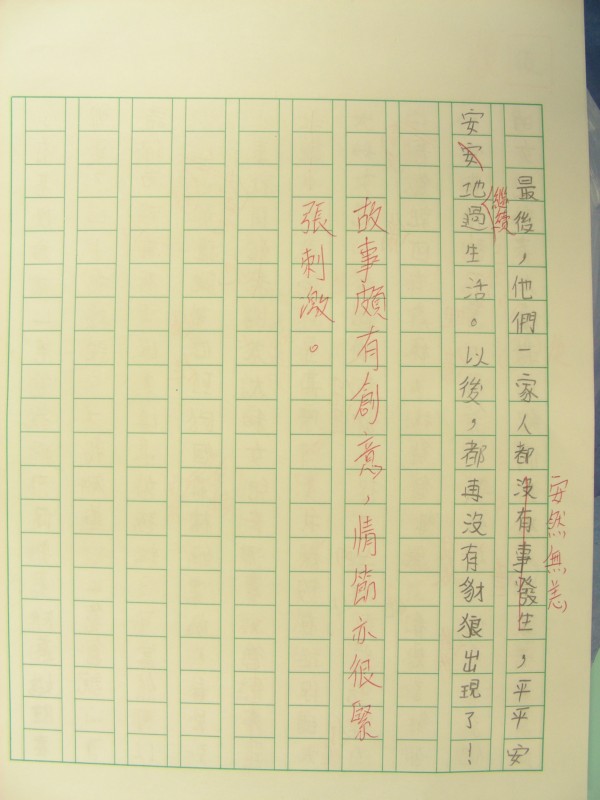 安然無恙
最後，他們一家人都沒有事發生，平平安
繼續
安安地過生活。以後，都再沒有豺狼出現了！
故事頗有創意，情節亦很緊
張刺激。